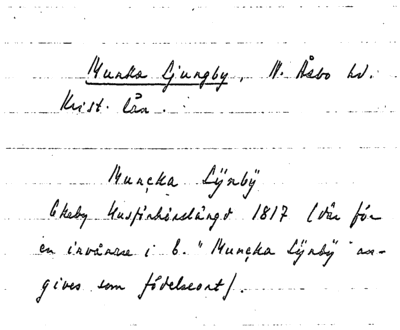 Munka Ljungby, N. Åsbo hd.
Krist. län.
Muncka Lÿnbÿ
Ekeby Husförhörslängd 1817 (där för
en invånare i E. "Muncka Lÿnbÿ" an-
gives som födelseort).